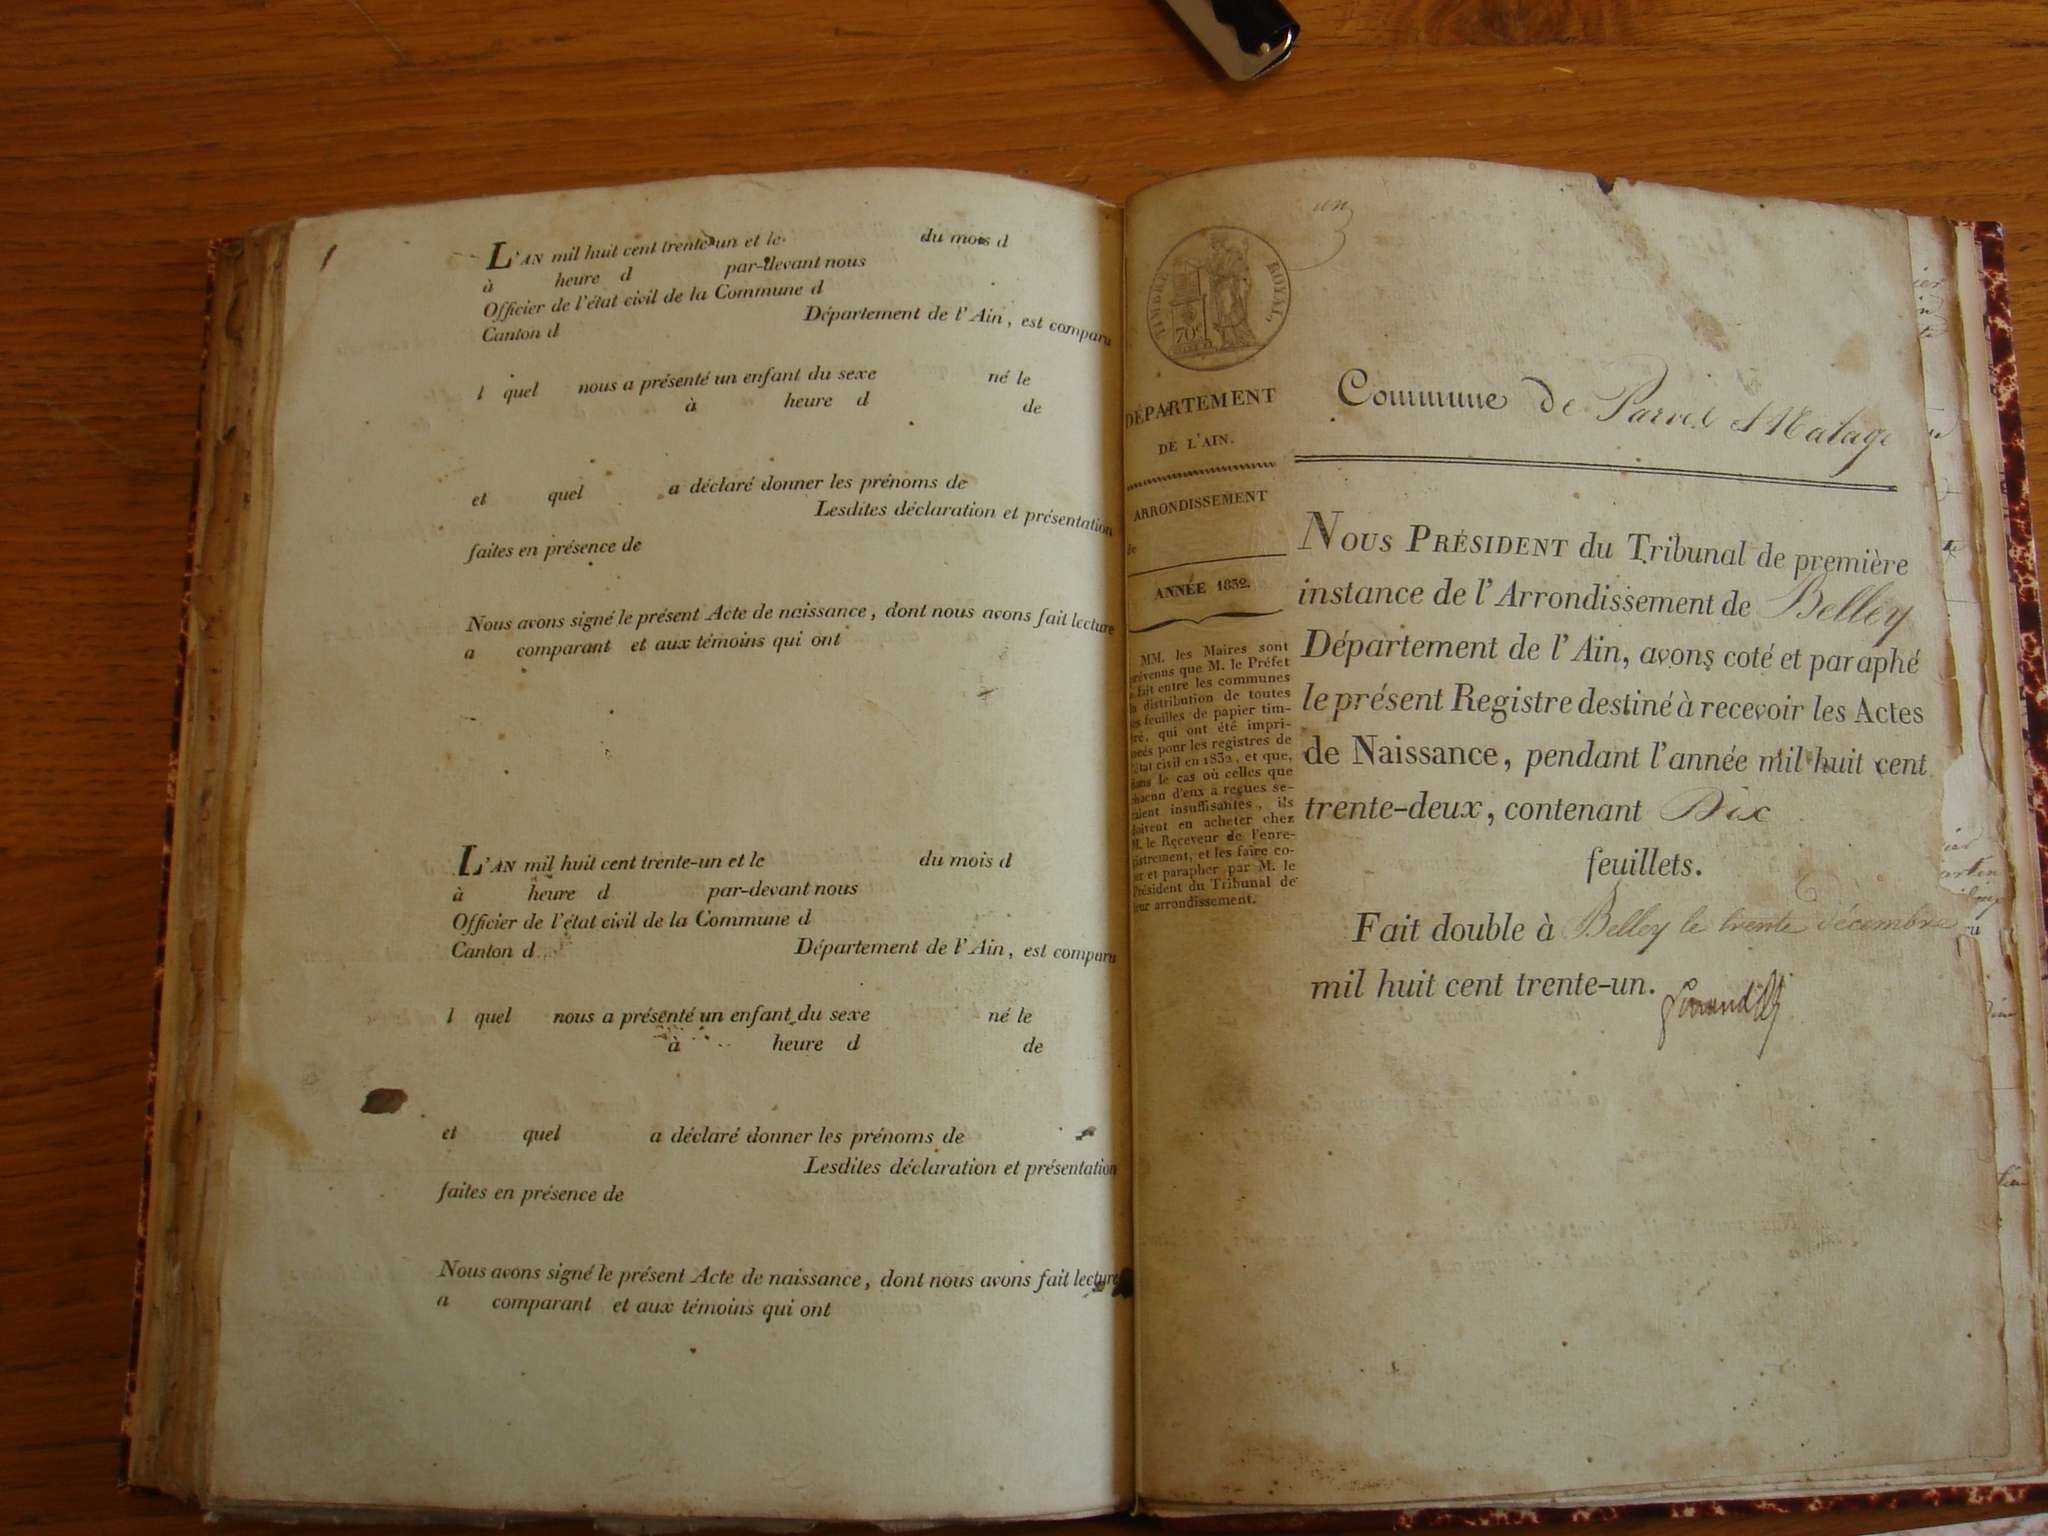 L'AN mil huit cent trente-un et le du mois d
à heure d par-devant nous
Officier de l'état civil de la Commune d
Canton d Département de l'Ain, est comparu
l quel nous a présenté un enfant du sexe né le
à heure d de
et quel a déclaré donner les prénoms de
Lesdites déclaration et présentation
faites en présence de
Nous avons signé le présent Acte de naissance, dont nous avons fait lecture
a comparant et aux témoins qui ont
L'AN mil huit cent trente-un et le du mois d
à heure d par-devant nous
Officier de l'état civil de la Commune d
Canton d Département de l'Ain, est comparu
l quel nous a présenté un enfant du sexe né le
à heure d de
et quel a déclaré donner les prénoms de
Lesdites déclaration et présentation
faites en présence de
Nous avons signé le présent Acte de naissance, dont nous avons fait lecture
a comparant et aux témoins qui ont
un
TIMBRE ROYAL
70c
DÉPARTEMENT
DE L'AIN.
ARRONDISSEMENT
de
ANNÉE 1832.
MM. les Maires sont
prévenus que M. le Préfet
a fait entre les communes
la distribution de toutes
les feuilles de papier tim-
bré, qui ont été impri-
mées pour les registres de
l'état civil en 1832, et que,
dans le cas où celles que
chacun d'eux a reçues se-
raient insuffisantes, ils
doivent en acheter chez
M. le Receveur de l'enre-
gistrement, et les faire co-
ter et parapher par M. le
Président du Tribunal de
leur arrondissement.
Commune de Parves et Nalage
NOUS PRÉSIDENT du Tribunal de première
instance de l'Arrondissement de Belley
Département de l'Ain, avons coté et paraphé
le présent Registre destiné à recevoir les Actes
de Naissance, pendant l'année mil huit cent
trente-deux, contenant Dix
feuillets.
Fait double à Belley le trente décembre
mil huit cent trente-un.